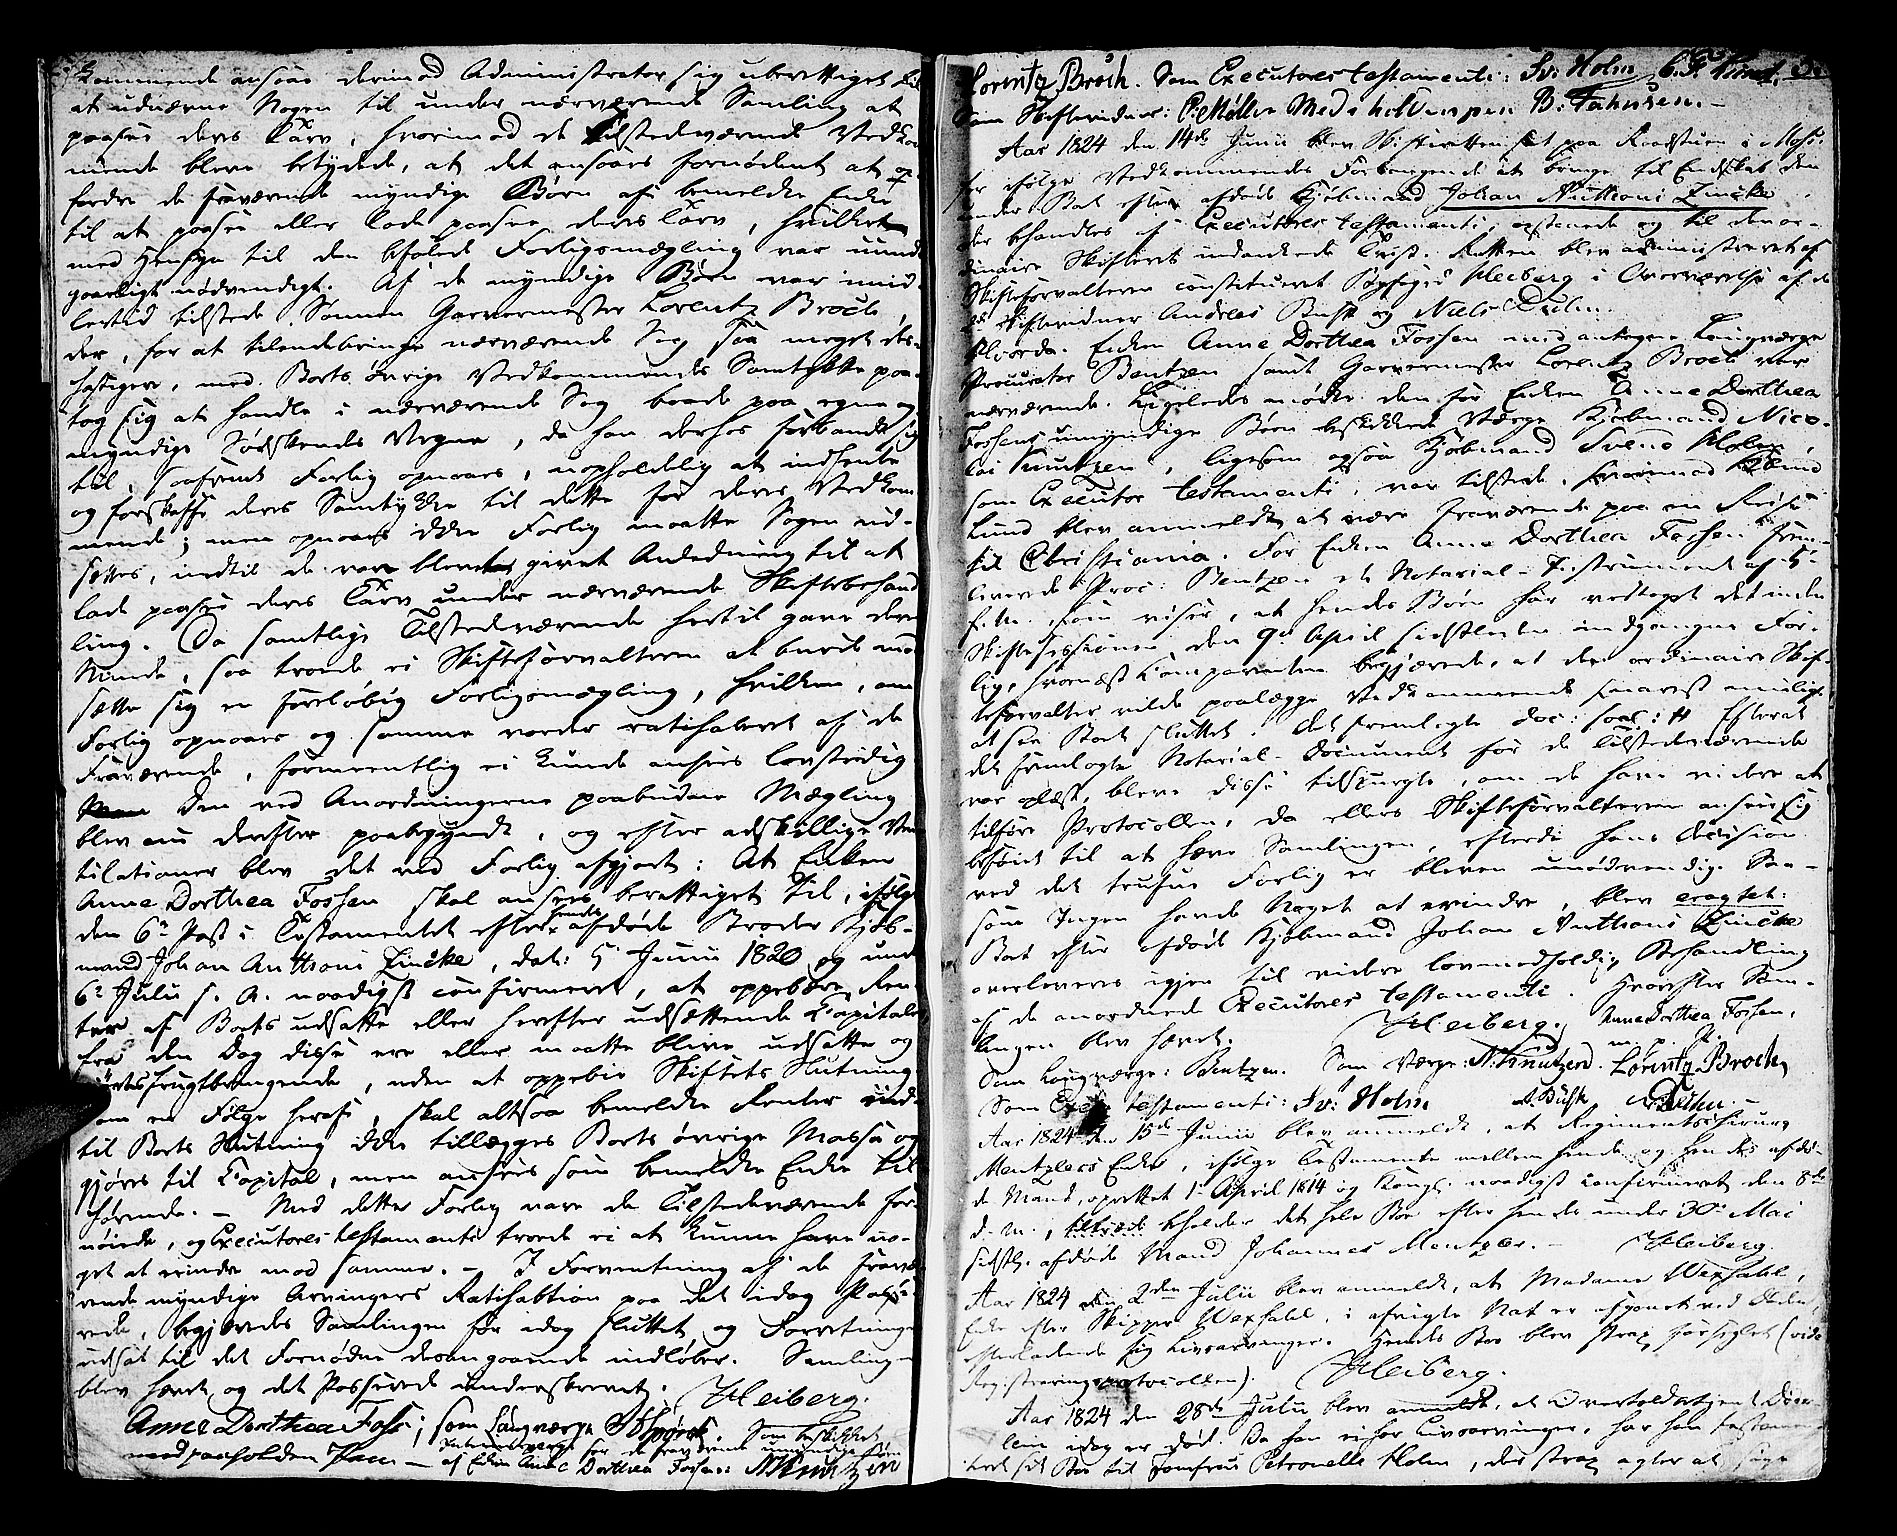 kommende ansaae derimod Administrator sig uberettiget til
at udnævne Nogen til under nærværende Samling at
paasee deres Tarv, hvorimod de tilstedeværende Vedkom
mende bleve betydede, at det ansaaes fornødent at op-
fordre de fraværende myndige Børn af bemeldte Enke
til at paasee eller lade paasee deres Tarv, hvilket
med Hensyn til den befalede Forligsmægling var uund
gaaeligt nødvendigt. Af de myndige Børn var imid-
lertid tilstede Sønnen Garvermester Lorentz Broch,
der, for at tilendebringe nærværende Sag saa meget des-
hastigere, med Boets øvrige Vedkommendes Samtykke paa-
tog sig at handle i nærværende Sag baade paa egne og
myndige Sødskendes Vegne, da han derhos forbandt sig
til, saafremt Forlig opnaaes, uopholdelig at indhente
og forskaffe deres Samtykke til dette for deres Vedkom
mende; men opnaaes ikke Forlig maatte Sagen ud-
sættes, indtil de var blevne givet Anledning til at
lade paasee deres Tarv under nærværende Skiftebehand
ling. Da samtlige Tilstedeværende hertil gave deres
Minde, saa troede ei Skifteforvalteren at burde mod
sætte sig en foreløbig Forligsmægling, hvilken, om
Forlig opnaaes og samme vorder ratihaberet af de
Fraværende, formeentlig ei kunde ansees lovstridig
Den ved Anordningerne paabudne Mægling
blev nu derefter paabegyndt, og efter adskillige Ven
tilationer blev det ved Forlig afgjort: At Enken
Anne Dorthea Fossen skal ansees berettiget til, ifølge
den 6te Post i Testamentet efter hendes afdøde Broder Kjøb-
mand Johan Anthoni Zincke, dat: 5 Junii 1820 og under
6te Julii s. A. naadigst confirmeret, at oppebære Ren
ter af Boets udsatte eller herefter udsættende Capitaler
fra den Dag disse ere eller maatte blive udsatte og
frugtbringende, uden at oppebie Skiftets Slutning
som en Følge heraf, skal altsaa bemeldte Renter ind-
til Boets Slutning ikke tillægges Boets øvrige Massa og
gjøres til Capital, men ansees som bemeldte Enke til
hørende. - Med dette Forlig vare de Tilstedeværende for-
nøiede, og Executores testamenti troede ei at kunne have no-
get at erindre mod samme. - I Forventning af de fravæ
rende myndige Arvingers Ratihabtion paa det idag Passe-
rede, begjæredes Samlingen for idag sluttet og Forretningen
udsat til det Fornødne desangaaende indløber. Samlingen
blev hævet og det Passerede underskrevet. Heiberg.
Anne Dorthea Foss; som Laugværge
med paaholden Pen - af Enken Anne Dorthea Fossen: N Knutzen
Lorentz Broch. Som Executores testamenti: Sv: Holm
Som Skiftevidner: P. Møller Med i holden pen B. Fahnsen. -
Aar 1824 den 14de Junii blev Skifteretten sat paa Raadstuen i Moss
for ifølge Vedkommendes Forlangende at bringe til Endskab den
under Boet efter afdøde Kjøbmand Johan Anthoni Zincke
der behandles af Executores testamenti, opstaaede og til den or-
dinaire Skifteret indankede Tvist. Retten blev administreret af
Skifteforvalteren constitueret Byfoged Heiberg i Overværelse af de
Skiftevidner Andreas Buch og Niels Duhn.
Hvorda. Enken Anne Dorthea Fossen med antagne Laugværge
Procurator Bentzen samt Garvermester Lorentz Broch var
nærværende. Ligeledes mødte den for Enken Anne Dorthea
Fossens umyndige Børn beskikkede Værge Kjøbmand Nico-
lai Knutzen, ligesom ogsaa Kjøbmand Svend Holm,
som Executor testamenti, var tilstede, hvorimod
Lund blev anmeldt at være fraværende paa en Reise
til Christiania. For Enken Anne Dorthea Fossen frem-
leverede Proc: Bentzen et Notarial-Instrument af 5
f. M., som viser, at hendes Børn har vedtaget det under
Skiftesessionen den 9de April sidstleden indgangne For-
lig, hvornæst Comparenten begjærede, at den ordinaire Skif-
teforvalter vilde paalægge Vedkommende snarest muligt
at see Boet sluttet. Det fremlagte Doc: saal: H Efterat
det fremlagte Notarial-Document for de Tilstedeværende
var oplæst, bleve disse tilspurgte, om de have videre at
tilføre Protocollen, da ellers Skifteforvalteren ansee sig
beføiet til at hæve Samlingen, efterdi hans Decision
ved det trufne Forlig er bleven unødvendig. Saa-
som Ingen havde Noget at erindre, blev eragtet:
Boet efter afdøde Kjøbmand Johan Anthoni Zincke
overleveres igjen til videre lovmedholdig Behandling
af de anordnede Executores testamenti. Hvorefter Sam-
lingen blev hævet. Heiberg. Anne Dorthea Fossen,
m. p. P.
Som Laugværge: Bentzen. Som Værge: N. Knutzen. Lorentz Broch,
Som Exec: testamenti: Sv: Holm A. Buch N Duhn. -
Aar 1824 den 15de Junii blev anmeldt, at Regimentschirurg
Mentzlers Enke, ifølge Testamente mellem hende og hendes afdø-
de Mand, oprettet 1 April 1814 og Kongl. naadigst confirmeret den 8de
d. M., beholder det hele Boe efter hendes under 30te Mai
sidstl. afdøde Mand Johannes Mentzler. - Heiberg.
Aar 1824 den 2den Julii blev anmeldt, at Madame Wexhahl,
Enke efter Skipper Wexhahl, i afvigte Nat er afgaaet ved Døden,
efterladende sig Livsarvinger. Hendes Boe blev strax forseglet (vide
Registreringsprotocollen). Heiberg.
Aar 1824 den 28de Julii blev anmeldt, at Overtoldbetjent
idag er død. Da han ei har Livsarvinger, har han testamen-
teret sit Boe til Jomfrue Petronelle Holm, der strax agter at søge